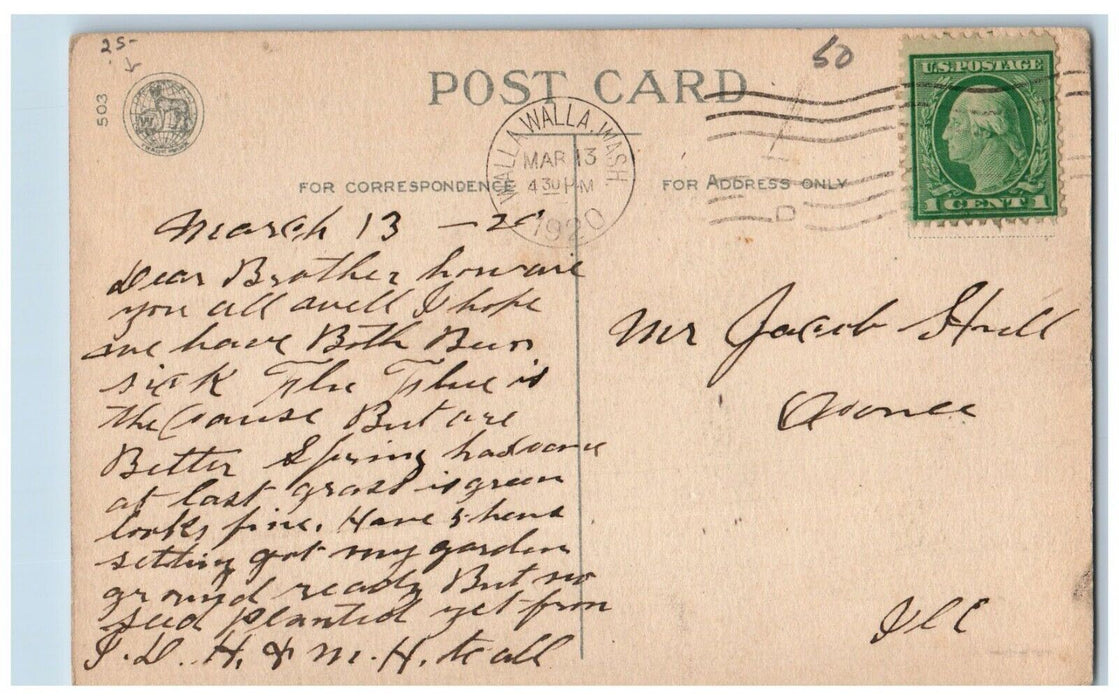 25-
50
503
POST CARD
U.S. POSTAGE
1 CENT 1
WALLA WALLA, WASH.
MAR 13
4 30 PM
1920
D
FOR CORRESPONDENCE
FOR ADDRESS ONLY
March 13 - 20
Dear Brother how are
you all well I hope
we have Both Been
sick The Flue is
the Cause But are
Better Spring has come
at last grass is green
looks fine. Have 5 hens
setting got my garden
ground ready But no
seed planted yet from
J. D. H. & M. H. to all
Mr Jacob Hull
Avonce
Ill